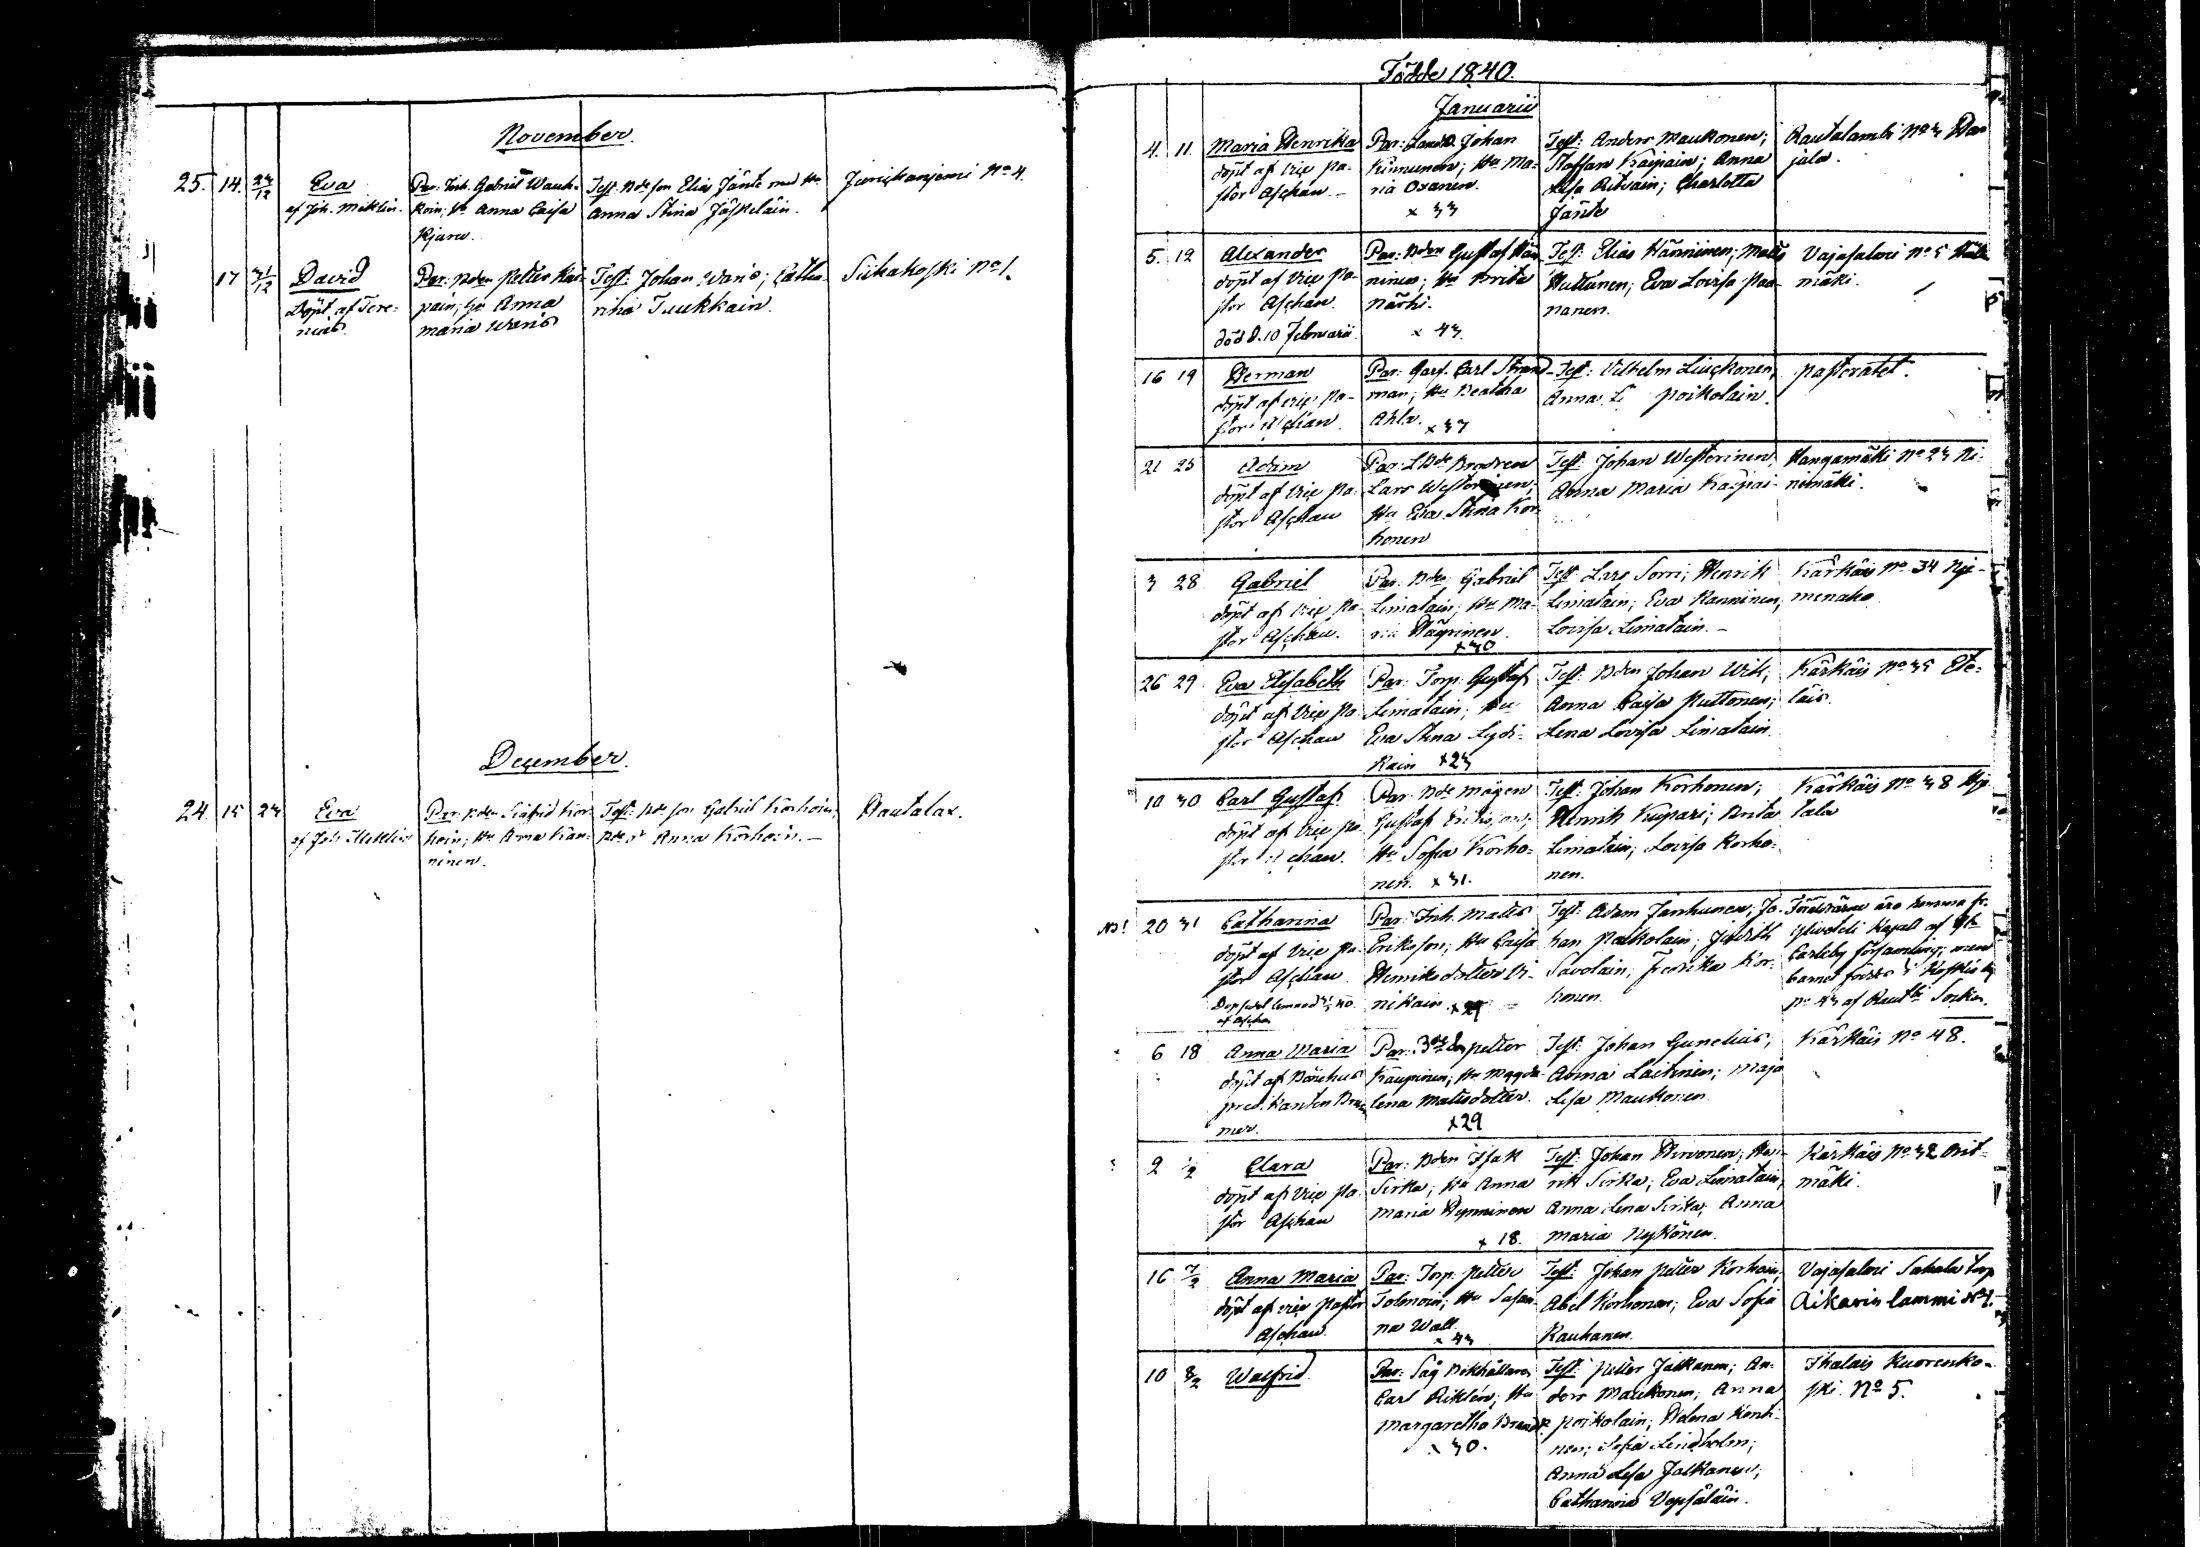 November.
25. 14. 24/12
Eva
af Joh. Meklin.
Par. Inh. Gabriel Wauh-
koin; Hu Anna Caisa
Kjaru.
Test. Bdeson Elias Jänte med Hu
Anna Stina Jäskeläin.
No 4.
17 31/12
David
Döpt af Fore-
nius.
Par. Bden Petter Kai-
pain; Hu Anna
Maria Waris
Test: Johan Waris; Catha-
rina Tuukkain.
Siikakoski No 1.
December.
24. 15 27
Eva
af Joh. Meklin
Par. Bden Sigfrid Kor-
hoin; Hu Anna Kan-
ninen.
Test: Bdeson Gabriel Korhoin;
Anna Korhoin. —
Rautalax.
Födde 1840.
Januarii
4. 11.
Maria Henrika
döpt af Vice Pa-
stor Aschan. —
Par: Landb. Johan
Kinnunen; Hu Ma-
ria Oxanen.
x 33
Test: Anders Maukonen;
Staffan Käipäin; Anna
Lisa Ritvain; Charlotta
Jänte
Rautalambi No 3 Har-
jala.
5. 12
Alexander
döpt af Vice Pa-
stor Aschan.
död d. 10 Februarii.
Par: Bden Gustaf Hän-
ninen; Hu Brita
Närhi.
x 43.
Test: Elias Hänninen; Matts
Huttunen; Eva Lovisa Paa-
nanen.
Vajasalmi No 5
mäki.
16 19
Herman
döpt af Vice Pa-
stor Aschan.
Par: Garf. Carl Strand-
man; Hu Beatha
Ahla.
x 37
Test: Vilhelm Liuckonen,
Anna Li Poikolain.
Pastoratet.
21 25
Adam
döpt af Vice Pa-
stor Aschan
Par: LBde Brodren
Lars Westerinen;
Hu Eva Stina Kor-
honen
Test: Johan Westerinen;
Anna Maria Kaipai-
Hangamäki No 23 Ni-
nimäki.
3 28
Gabriel
döpt af Vice Pa-
stor Aschan.
Par. Bden Gabriel
Limatain; Hu Ma-
ria Häyrinen.
x 30
Test: Lars Sorri; Henrik
Limatain; Eva Kanninen;
Lovisa Limatain. —
Kärkäis No 34
menaho
26 29
Eva Elisabeth
döpt af Vice Pa-
stor Aschan
Par: Torp. Gustaf
Limatain; Hu
Eva Stina Lydi-
kain x 23
Test: Bden Johan Wik;
Anna Caisa Puttonen;
Lena Lovisa Limatain.
Kärkäis No 35 Ete-
läis.
10 30
Carl Gustaf
döpt af Vice Pa-
stor Aschan.
Par: Bde mågen
Gustaf Eriksson;
Hu Sofia Korho-
nen. x 31.
Test: Johan Korhonen;
Henrik Kuipari; Brita
Limatain; Lovisa Korho-
nen.
Kärkäis No 38
tala
NB! 20 31
Catharina
döpt af Vice Pa-
stor Aschan
af Aschan
Par: Inh. Matts
Eriksson; Hu Caisa
Henriksdotter Vi-
nikain. x 29
Test: Adam Janhunen; Jo-
han Poikolain; Judith
Savolain; Fredrika Kor-
honen.
Föräldrarna äro komna fr.
Kapell af Gl.
Carleby församling; men
barnet föddes i
No 43 af Rautbi Socken.
6 18
Anna Maria
döpt af Bönehus
predikanten
mer.
Par: Petter
Käupinen; Hu Magda-
lena Mattsdotter.
x 29
Test: Johan Gunelius;
Anna Laitinen; Maja
Lisa Maukonen.
Kärkäis No 48.
2 1/2
Clara
döpt af Vice Pa-
stor Aschan
Par: Bden Isak
Sirka; Hu Anna
Maria Hynninen
x 18.
Test: Johan Hirvonen; Hen-
rik Sirka; Eva Limatain;
Anna Lena Sirka; Anna
Maria Nykönen.
Kärkäis No 32
mäki.
16 7/2
Anna Maria
döpt af Vice Pastor
Aschan.
Par: Torp. Petter
Tolonoin; Hu Susan-
na Wall.
x 43
Test: Johan Petter Korhoin;
Abel Korhonen; Eva Sofia
Rauhanen.
Vajasalmi Sahala torp
Aikarin lammi No 1.
10 8/2
Walfrid
Par: Såg Bokhållaren
Carl Riklén; Hu
Margaretha Brandt.
x 30.
Test: Petter Jalkanen; An-
ders Maukonen; Anna
Poikolain; Helena Konti-
nen; Sofia Lindholm;
Anna Lisa Jalkanen;
Catharina Vepsäläin.
Ihalais Kuorenko-
ski. No 5.